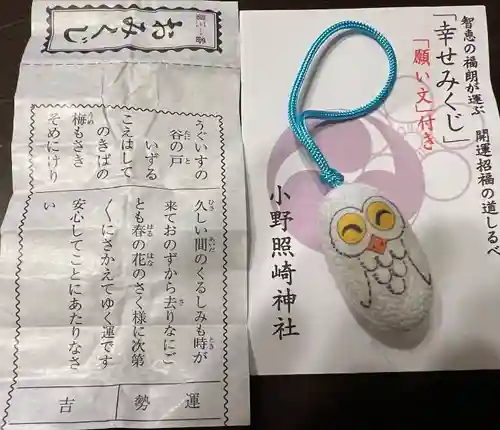 おみくじ
うぐいすの
谷の戸
いずる
こえはして
のきばの
梅もさき
そめにけり
久しい間のくるしみも時が
来ておのずから去りなにご
とも春の花のさく様に次第
〱にさかえてゆく運です
安心してことにあたりなさ
い
運勢
吉
智恵の福朗が運ぶ 開運招福の道しるべ
「幸せみくじ」
「願い文」付き
小野照崎神社